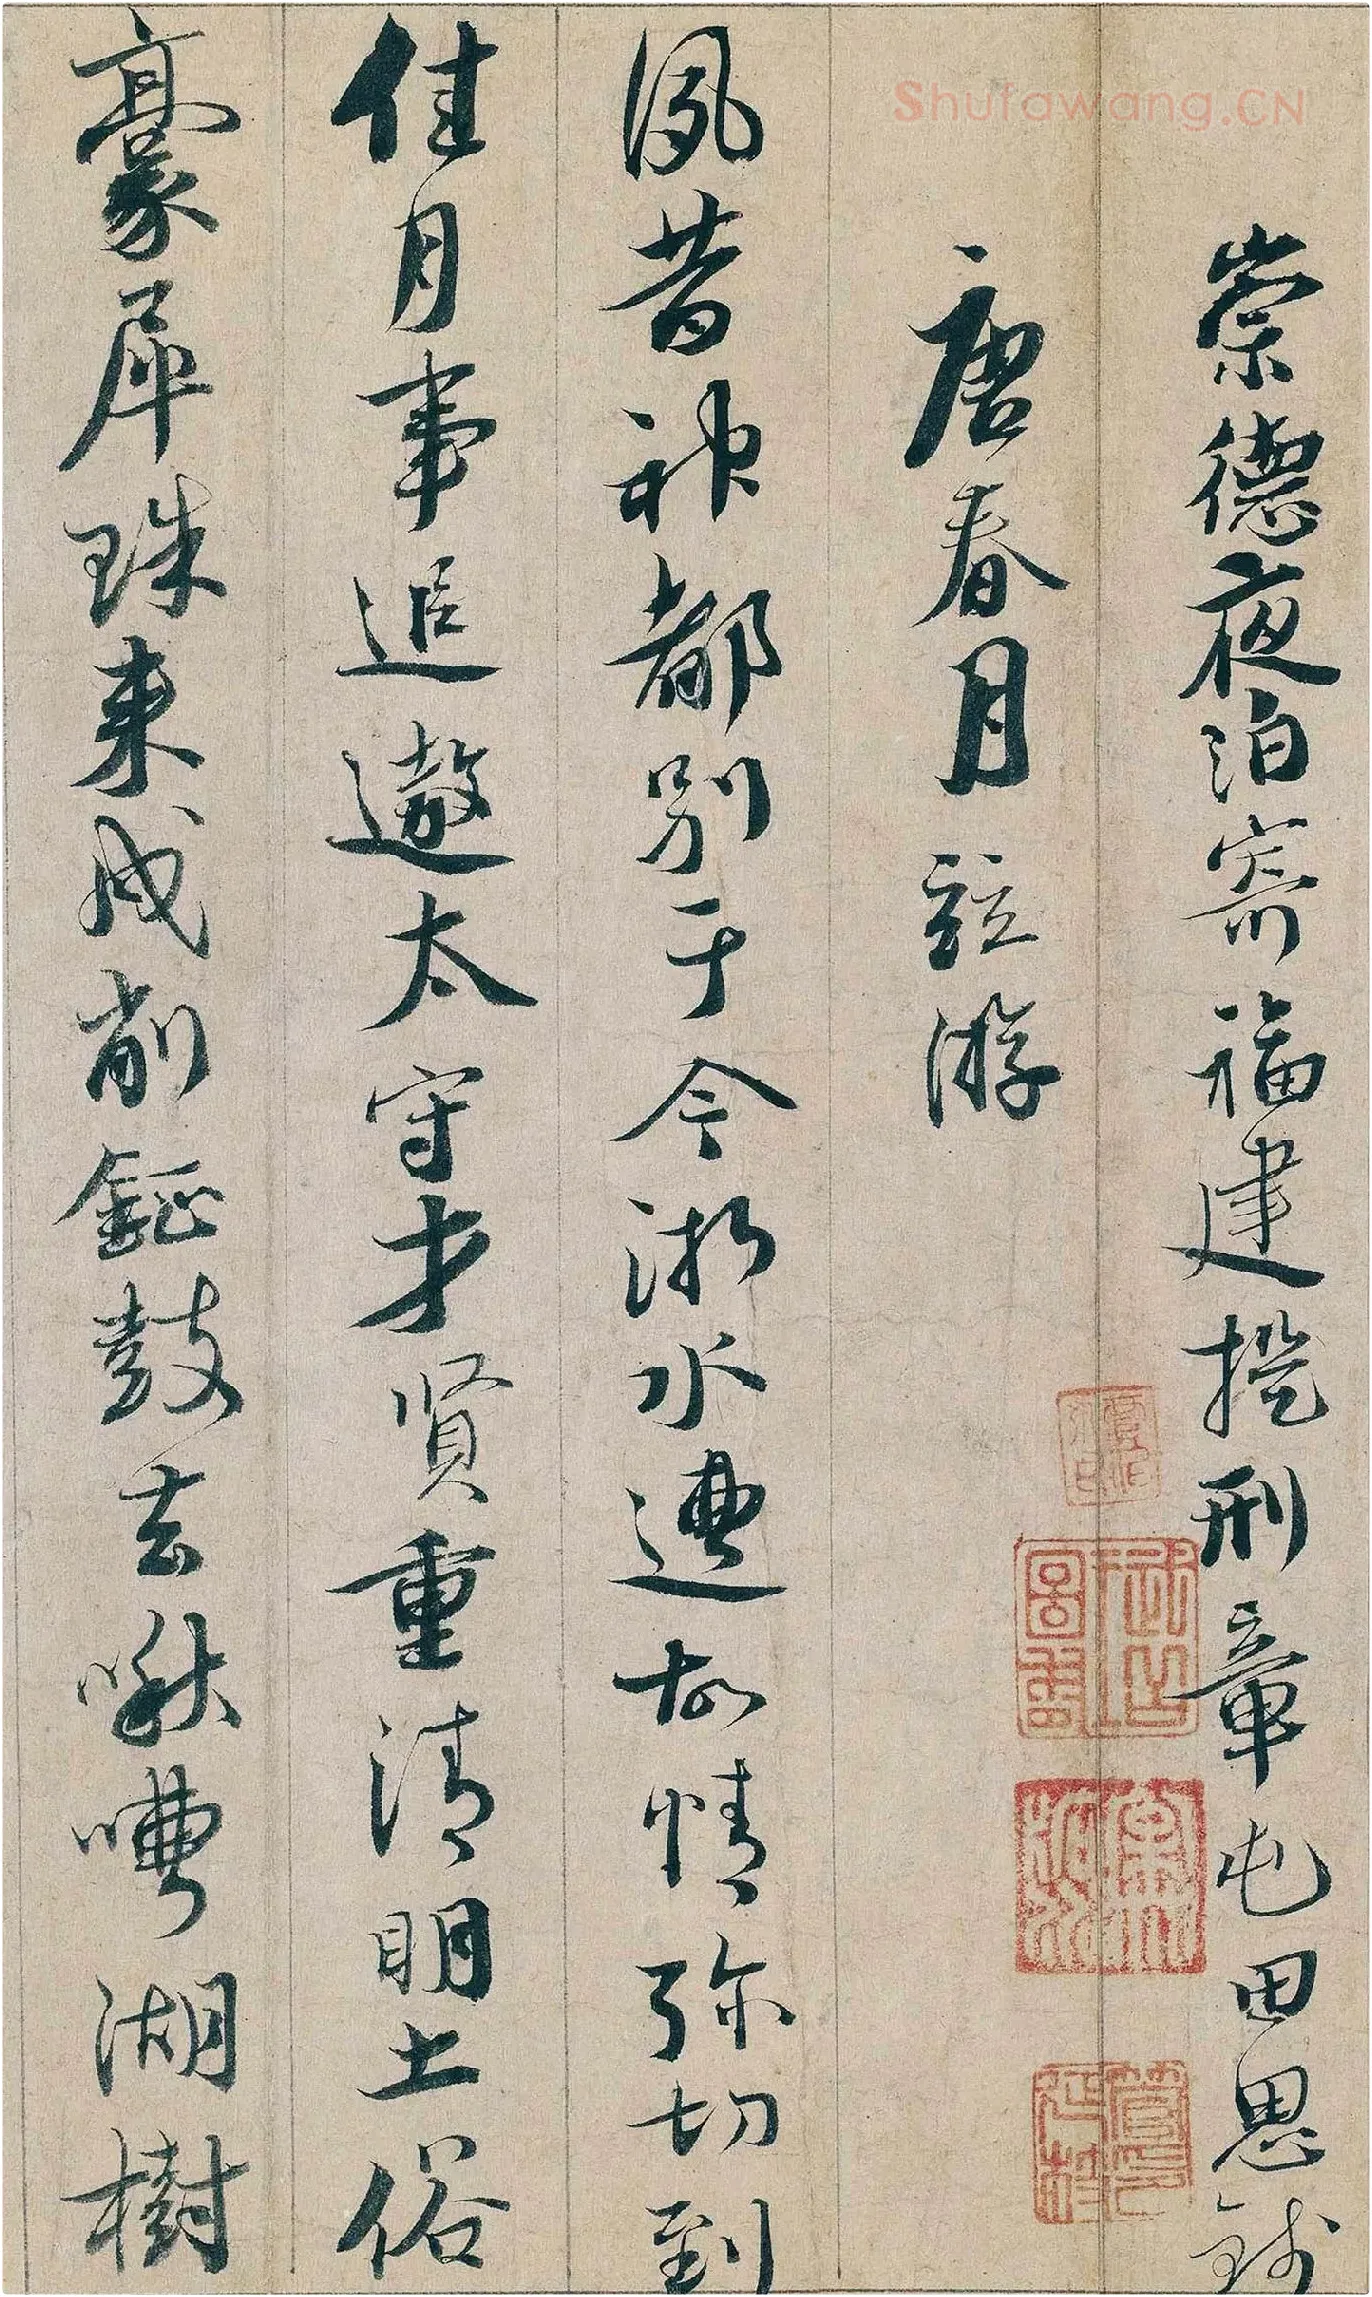 Shufawang.CN
崇德夜泊寄福建提刑章屯田思錢
唐春月並游
夙昔神都別于今浙水遭故情弥切到
佳月事追遨太守才賢重清明土俗
豪犀珠来戍削鉦鼓去啾嘈湖樹